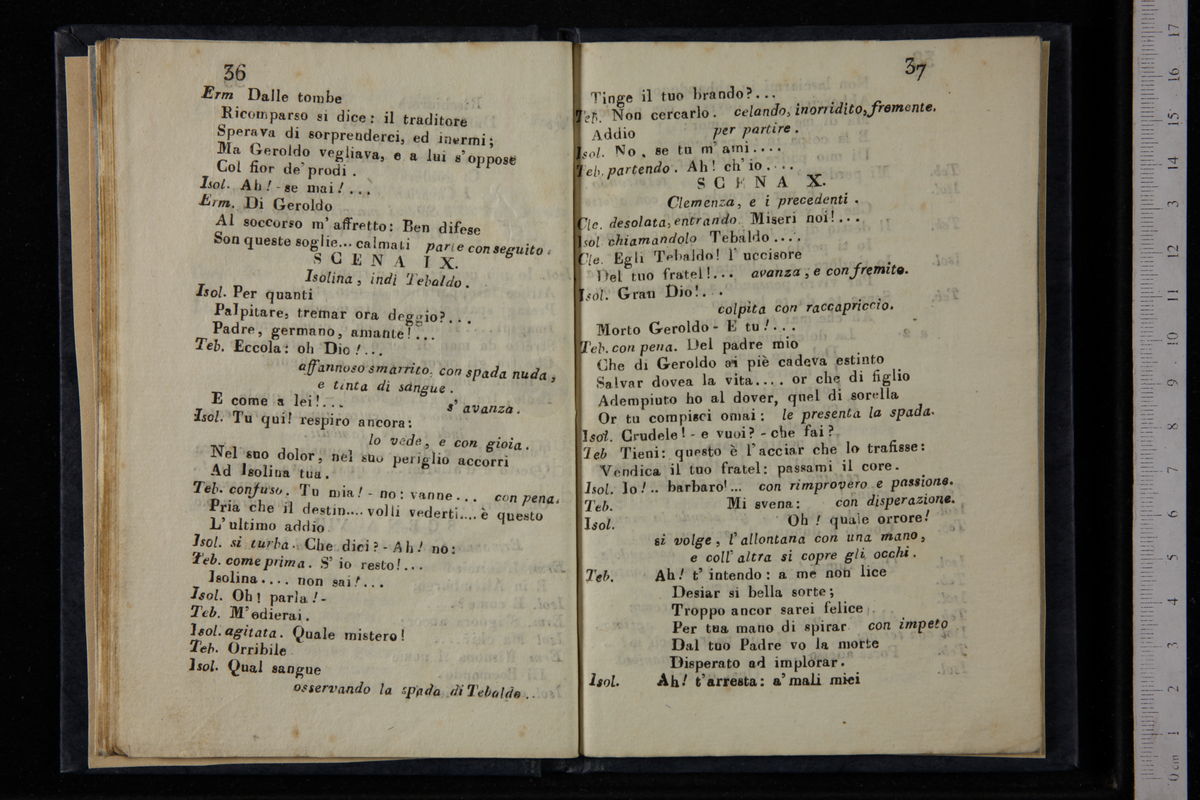 36
Erm Dalle tombe
Ricomparso si dice: il traditore
Sperava di sorprenderci, ed inermi;
Ma Geroldo vegliava, e a lui s'oppose
Col fior de'prodi.
Isol. Ah! - se mai!...
Erm. Di Geroldo
Al soccorso m'affretto: Ben difese
Son queste soglie... calmati parte con seguito.
SCENA IX.
Isolina, indi Tebaldo.
Isol. Per quanti
Palpitare, tremar ora deggio?...
Padre, germano, amante!...
Teb. Eccola: oh Dio!...
affannoso smarrito, con spada nuda,
e tinta di sangue.
E come a lei!... s'avanza.
Isol. Tu qui! respiro ancora:
lo vede, e con gioia.
Nel suo dolor, nel suo periglio accorri
Ad Isolina tua.
Teb. confuso. Tu mia! - no: vanne... con pena.
Pria che il destin.... volli vederti.... è questo
L'ultimo addio
Isol. si turba. Che dici? - Ah! no:
Teb. come prima. S'io resto!...
Isolina.... non sai!...
Isol. Oh! parla! -
Teb. M'odierai.
Isol. agitata. Quale mistero!
Teb. Orribile
Isol. Qual sangue
osservando la spada di Tebaldo..
37
Tinge il tuo brando?...
Teb. Non cercarlo. celando, inorridito, fremente.
Addio per partire.
Isol. No, se tu m'ami....
Teb. partendo. Ah! ch'io....
SCENA X.
Clemenza, e i precedenti.
Cle. desolata, entrando. Miseri noi!...
Isol chiamandolo Tebaldo....
Cle. Egli Tebaldo! l'uccisore
Del tuo fratel!... avanza, e con fremito.
Isol. Gran Dio!...
colpita con raccapriccio.
Morto Geroldo - E tu!...
Teb. con pena. Del padre mio
Che di Geroldo ai piè cadeva estinto
Salvar dovea la vita.... or che di figlio
Adempiuto ho al dover, quel di sorella
Or tu compisci omai: le presenta la spada.
Isol. Crudele! - e vuoi? - che fai?
Teb Tieni: questo è l'acciar che lo trafisse:
Vendica il tuo fratel: passami il core.
Isol. Io!.. barbaro!... con rimprovero e passione.
Teb. Mi svena: con disperazione.
Isol. Oh! quale orrore!
si volge, l'allontana con una mano,
e coll'altra si copre gli occhi.
Teb. Ah! t'intendo: a me non lice
Desiar si bella sorte;
Troppo ancor sarei felice
Per tua mano di spirar con impeto
Dal tuo Padre vo la morte
Disperato ad implorar.
Isol. Ah! t'arresta: a'mali miei